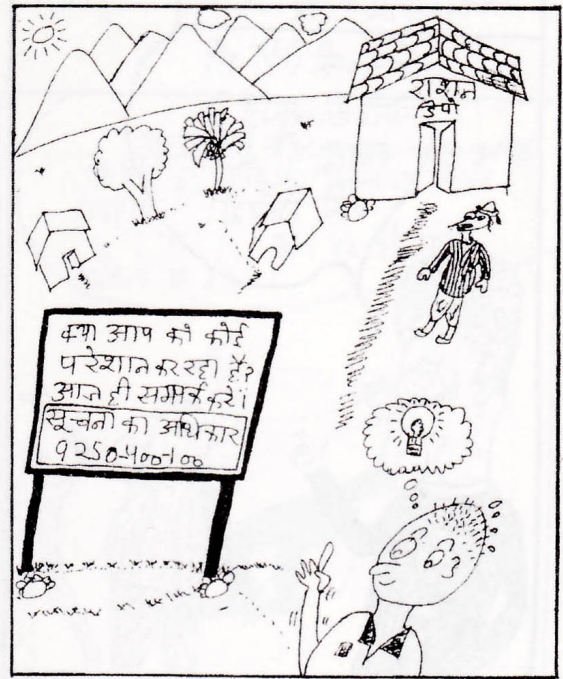 राशन
डिपो
क्या आप को कोई
परेशान कर रहा है?
आज ही सम्पर्क करें।
सूचना का अधिकार
9250-400-100